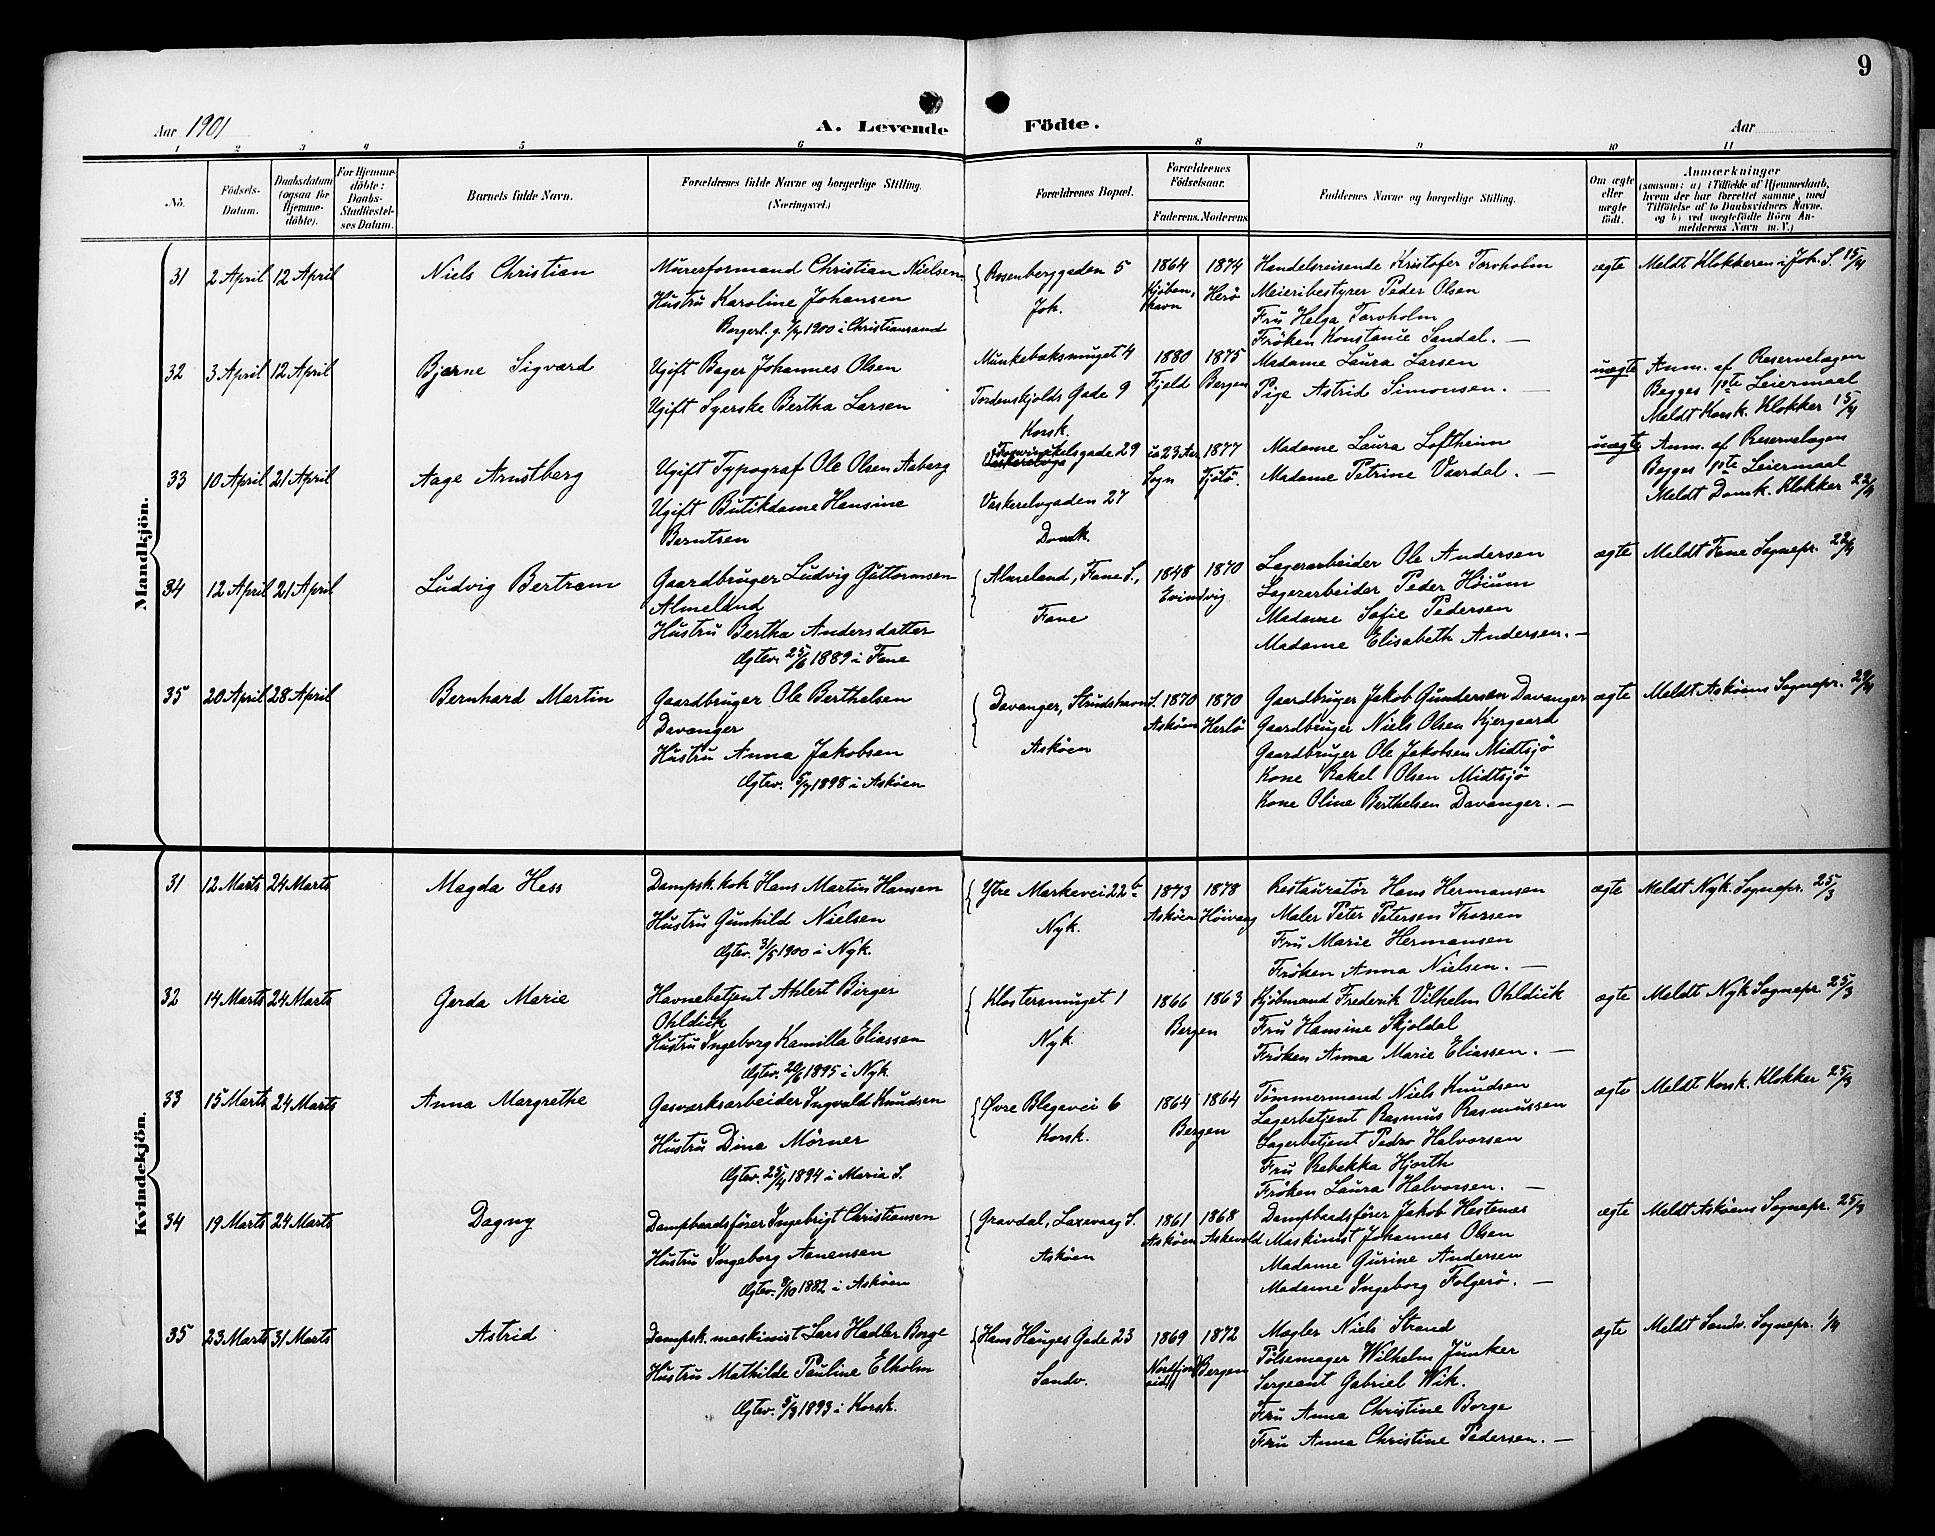 9
Aar 1901
A. Levende Födte.
Aar
1 2 3 4 5 6 8 9 10 11
No.
Födsels-Datum.
Daabsdatum (ogsaa for Hjemmedöbte).
For Hjemmedöbte: Daabs-Stadfæstelses Datum.
Barnets fulde Navn.
Forældrenes fulde Navne og borgerlige Stilling.
(Næringsvei.)
Forældrenes Bopæl.
Forældrenes Födselsaar.
Faderens. Moderens
Faddernes Navne og borgerlige Stilling.
Om ægte eller uægte födt.
Anmærkninger
(saasom: a) i Tilfælde af Hjemmedaab, hvem der har forrettet samme, med Tilföielse af to Daabsvidners Navne, og b) ved uægtefödte Börn Anmelderens Navn m. V.)
Mandkjön.
31 2 April 12 April Niels Christian
Murerformand Christian Nielsen
Hustru Karoline Johansen
Borgerl. g. 7/4 1900 i Christianssand
Rosenberggaden 5
Joh.
1864 Kjöbenhavn 1874 Herö
Handelsreisende Kristofer Torvholm
Meieribestyrer Peder Olsen
Fru Helga Torvholm
Fröken Konstance Sandal. —
ægte Meldt Klokkeren i Joh. S. 15/4
32 3 April 12 April Bjarne Sigvard
Ugift Bager Johannes Olsen
Ugift Syerske Bertha Larsen
Munkebæksmuget 4
Tordenskjolds Gade 9
Korsk.
1880 Fjeld 1875 Bergen
Madame Laura Larsen
Pige Astrid Simonsen. —
uægte Anm. af Reservelægen
Begges 1ste Leiermaal
Meldt Korsk. Klokker 15/4
33 10 April 21 April Aage Arnstberg
Ugift Typograf Ole Olsen Aaberg
Ugift Butikdame Hansine
Berntsen
29
Vaskerelvgaden 27
Domk.
ca 23 Aar Sogn 1877 Tjötö.
Madame Laura Loftheim
Madame Petrine Vaardal. —
uægte Anm. af Reservelægen
Begges 1ste Leiermaal
Meldt Domk. Klokker 22/4
34 12 April 21 April Ludvig Bertram
Gaardbruger Ludvig Guttormsen
Almeland
Hustru Bertha Andersdatter
Ægtev. 25/6 1889 i Fane
Almeland, Fane S.,
Fane
1848 1870
Evindvig
Lagerarbeider Ole Andersen
Lagerarbeider Peder Höium
Madame Sofie Pedersen
Madame Elisabeth Andersen. —
ægte Meldt Fane Sognepr. 22/4
35 20 April 28 April Bernhard Martin
Gaardbruger Ole Berthelsen
Davanger
Hustru Anna Jakobsen
Ægtev. 5/7 1898 i Asköen
Davanger, Strudshavn S.
Asköen
1870 Asköen 1870 Herlö
Gaardbruger Jakob Gundersen Davanger
Gaardbruger Niels Olsen Kjergaard
Gaardbruger Ole Jakobsen Midtsjö
Kone Rakel Olsen Midtsjö
Kone Oline Berthelsen Davanger. —
ægte Meldt Asköens Sognepr. 29/4
Kvindekjön.
31 12 Marts 24 Marts Magda Hess
Dampsk. kok Hans Martin Hansen
Hustru Gunhild Nielsen
Ægtev. 31/5 1900 i Nyk.
Ytre Markevei 22 b
Nyk.
1873 Asköen 1878 Höivaag
Restauratör Hans Hermansen
Maler Peter Petersen Thorsen
Fru Marie Hermansen
Fröken Anna Nielsen. —
ægte Meldt Nyk. Sognepr. 25/3
32 14 Marts 24 Marts Gerda Marie
Havnebetjent Ahlert Birger
Ohldick
Hustru Ingeborg Kamilla Eliassen
Ægtev. 20/6 1895 i Nyk.
Klostersmuget 1
Nyk.
1866 1863
Bergen
Kjöbmand Frederik Vilhelm Ohldick
Fru Hansine Skjoldal
Fröken Anna Marie Eliassen. —
ægte Meldt Nyk Sognepr. 25/3
33 15 Marts 24 Marts Anna Margrethe
Gasværksarbeider Ingvald Knudsen
Hustru Dina Mörner
Ægtev. 25/4 1894 i Maria S.
Øvre Blegevei 6
Korsk.
1864 1864
Bergen
Tömmermand Niels Knudsen
Lagerbetjent Rasmus Rasmussen
Lagerbetjent Pedro Halvorsen
Fru Rebekka Hjorth
Fröken Laura Halvorsen. —
ægte Meldt Korsk. Klokker 25/3
34 19 Marts 24 Marts Dagny
Dampbaadsförer Ingebrigt Christiansen
Hustru Ingeborg Aanensen
Ægtev. 8/10 1882 i Asköen
Gravdal, Laxevaag S.
Asköen
1861 Asköen 1868 Askevold
Dampbaadsförer Jakob Hestenæs
Maskinist Johannes Olsen
Madame Gurine Andersen
Madame Ingeborg Folgerö. —
ægte Meldt Asköens Sognepr. 25/3
35 23 Marts 31 Marts Astrid
Dampsk. maskinist Lars Hadler Borge
Hustru Mathilde Pauline Elholm
Ægtev. 5/3 1893 i Korsk.
Hans Hauges Gade 23
Sandv.
1869 Nordfjordeid 1872 Bergen
Mægler Niels Strand
Pölsemager Wilhelm Junker
Sergeant Gabriel Wik.
Fru Anna Christine Borge
Fru Anna Christine Pedersen. —
ægte Meldt Sandv. Sognepr. 1/4